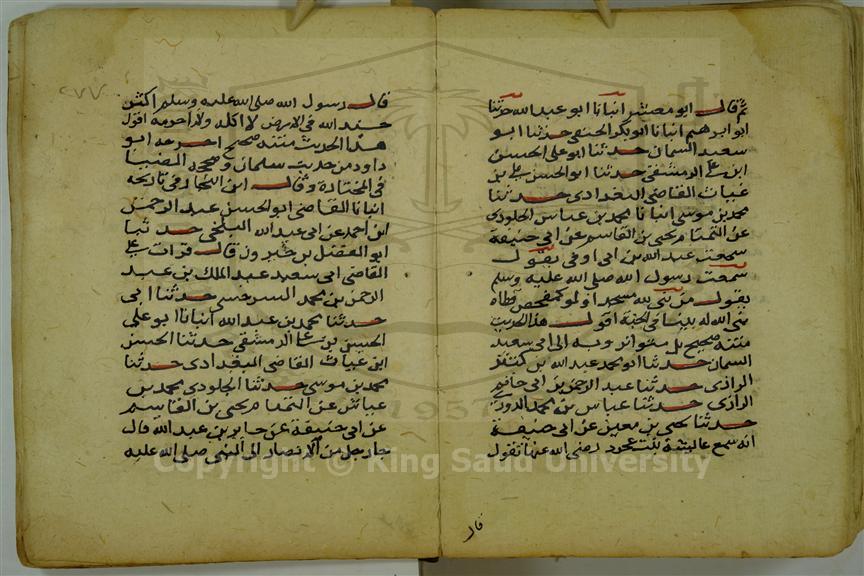 ثم قال ابو معشر انبانا ابو عبد الله حدثنا
ابو ابرهيم انبانا ابو بكر الحنفي حدثنا ابو
سعيد السمان حدثنا ابو علي الحسن
ابن علي الدمشقي حدثنا ابو الحسن علي بن
غياث القاضي البغدادي حدثنا
محمد بن موسى انبانا محمد بن عياش الجلودي
عن التمتام يحيى بن القاسم عن ابي حنيفة
سمعت عبد الله بن ابي اوفى يقول
سمعت رسول الله صلى الله عليه وسلم
يقول من بنى لله مسجدا ولو كمفحص قطاة
بنى الله له بيتا في الجنة اقول هذا الحديث
متنه صحيح بل متواتر وبه الى ابي سعيد
السمان حدثنا ابو محمد عبد الله بن كثير
الرازي حدثنا عبد الرحمن بن ابي حاتم
الرازي حدثنا عباس بن محمد الدوري
حدثنا يحيى بن معين عن ابي حنيفة
انه سمع عائشة بنت عجرد رضي الله عنها تقول
قال
٢٧٧
قال رسول الله صلى الله عليه وسلم اكثر
جند الله في الارض لا اكله ولا احرمه اقول
هذا الحديث متنه صحيح اخرجه ابو
داود من حديث سلمان وصححه الضيا
في المختارة وقال ابن النجار في تاريخه
انبانا القاضي ابو الحسن عبد الرحمن
ابن احمد عن ابي عبد الله البلخي حدثنا
ابو الفضل بن خيرون قال قرات على
القاضي ابي سعيد عبد الملك بن عبد
الرحمن بن محمد السرخسي حدثنا ابي
حدثنا محمد بن عبد الله انبانا ابو علي
الحسن بن علي الدمشقي حدثنا الحسن
ابن غياث القاضي البغدادي حدثنا
محمد بن موسى حدثنا الجلودي محمد بن
عياش عن التمتام يحيى بن القاسم
عن ابي حنيفة عن جابر بن عبد الله قال
جا رجل من الانصار الى النبي صلى الله عليه
1957
Copyright © King Saud University